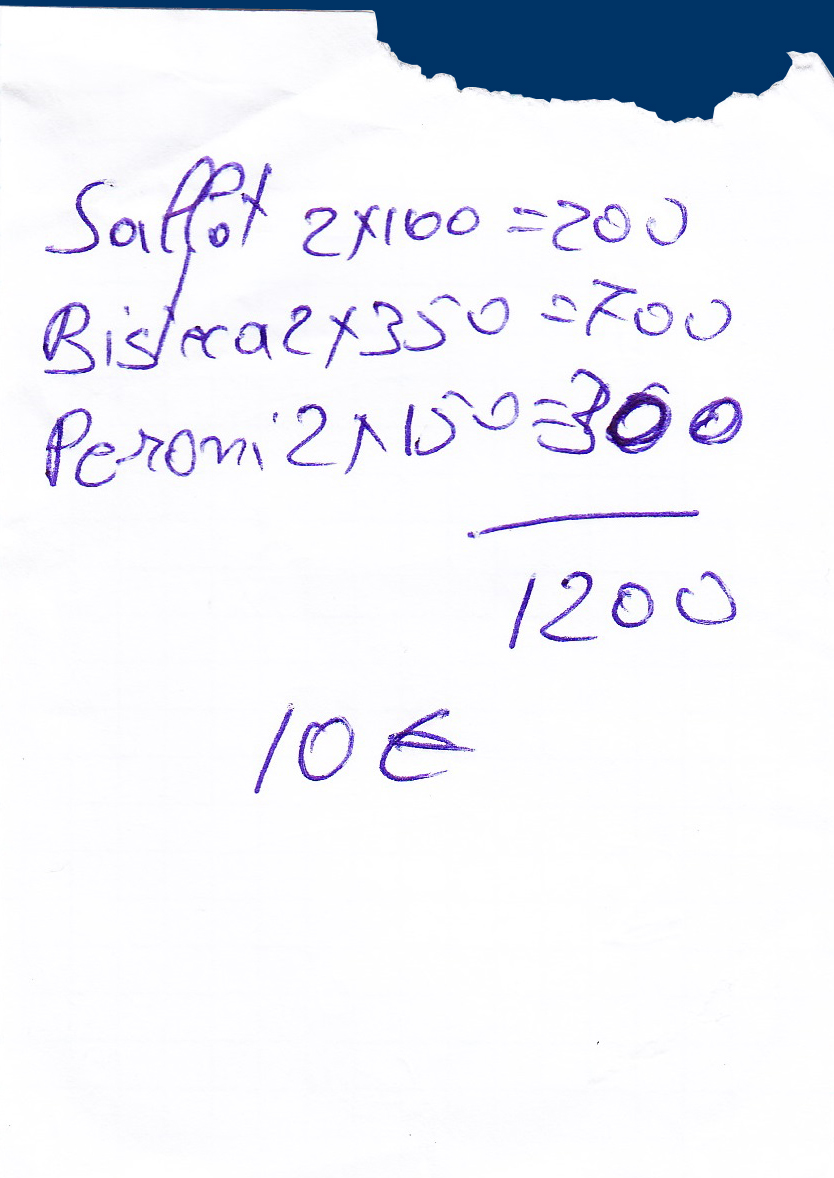 Sallot 2x100 =200
Bisteca 2x350 =700
Peroni 2x150=300
1200
10 €